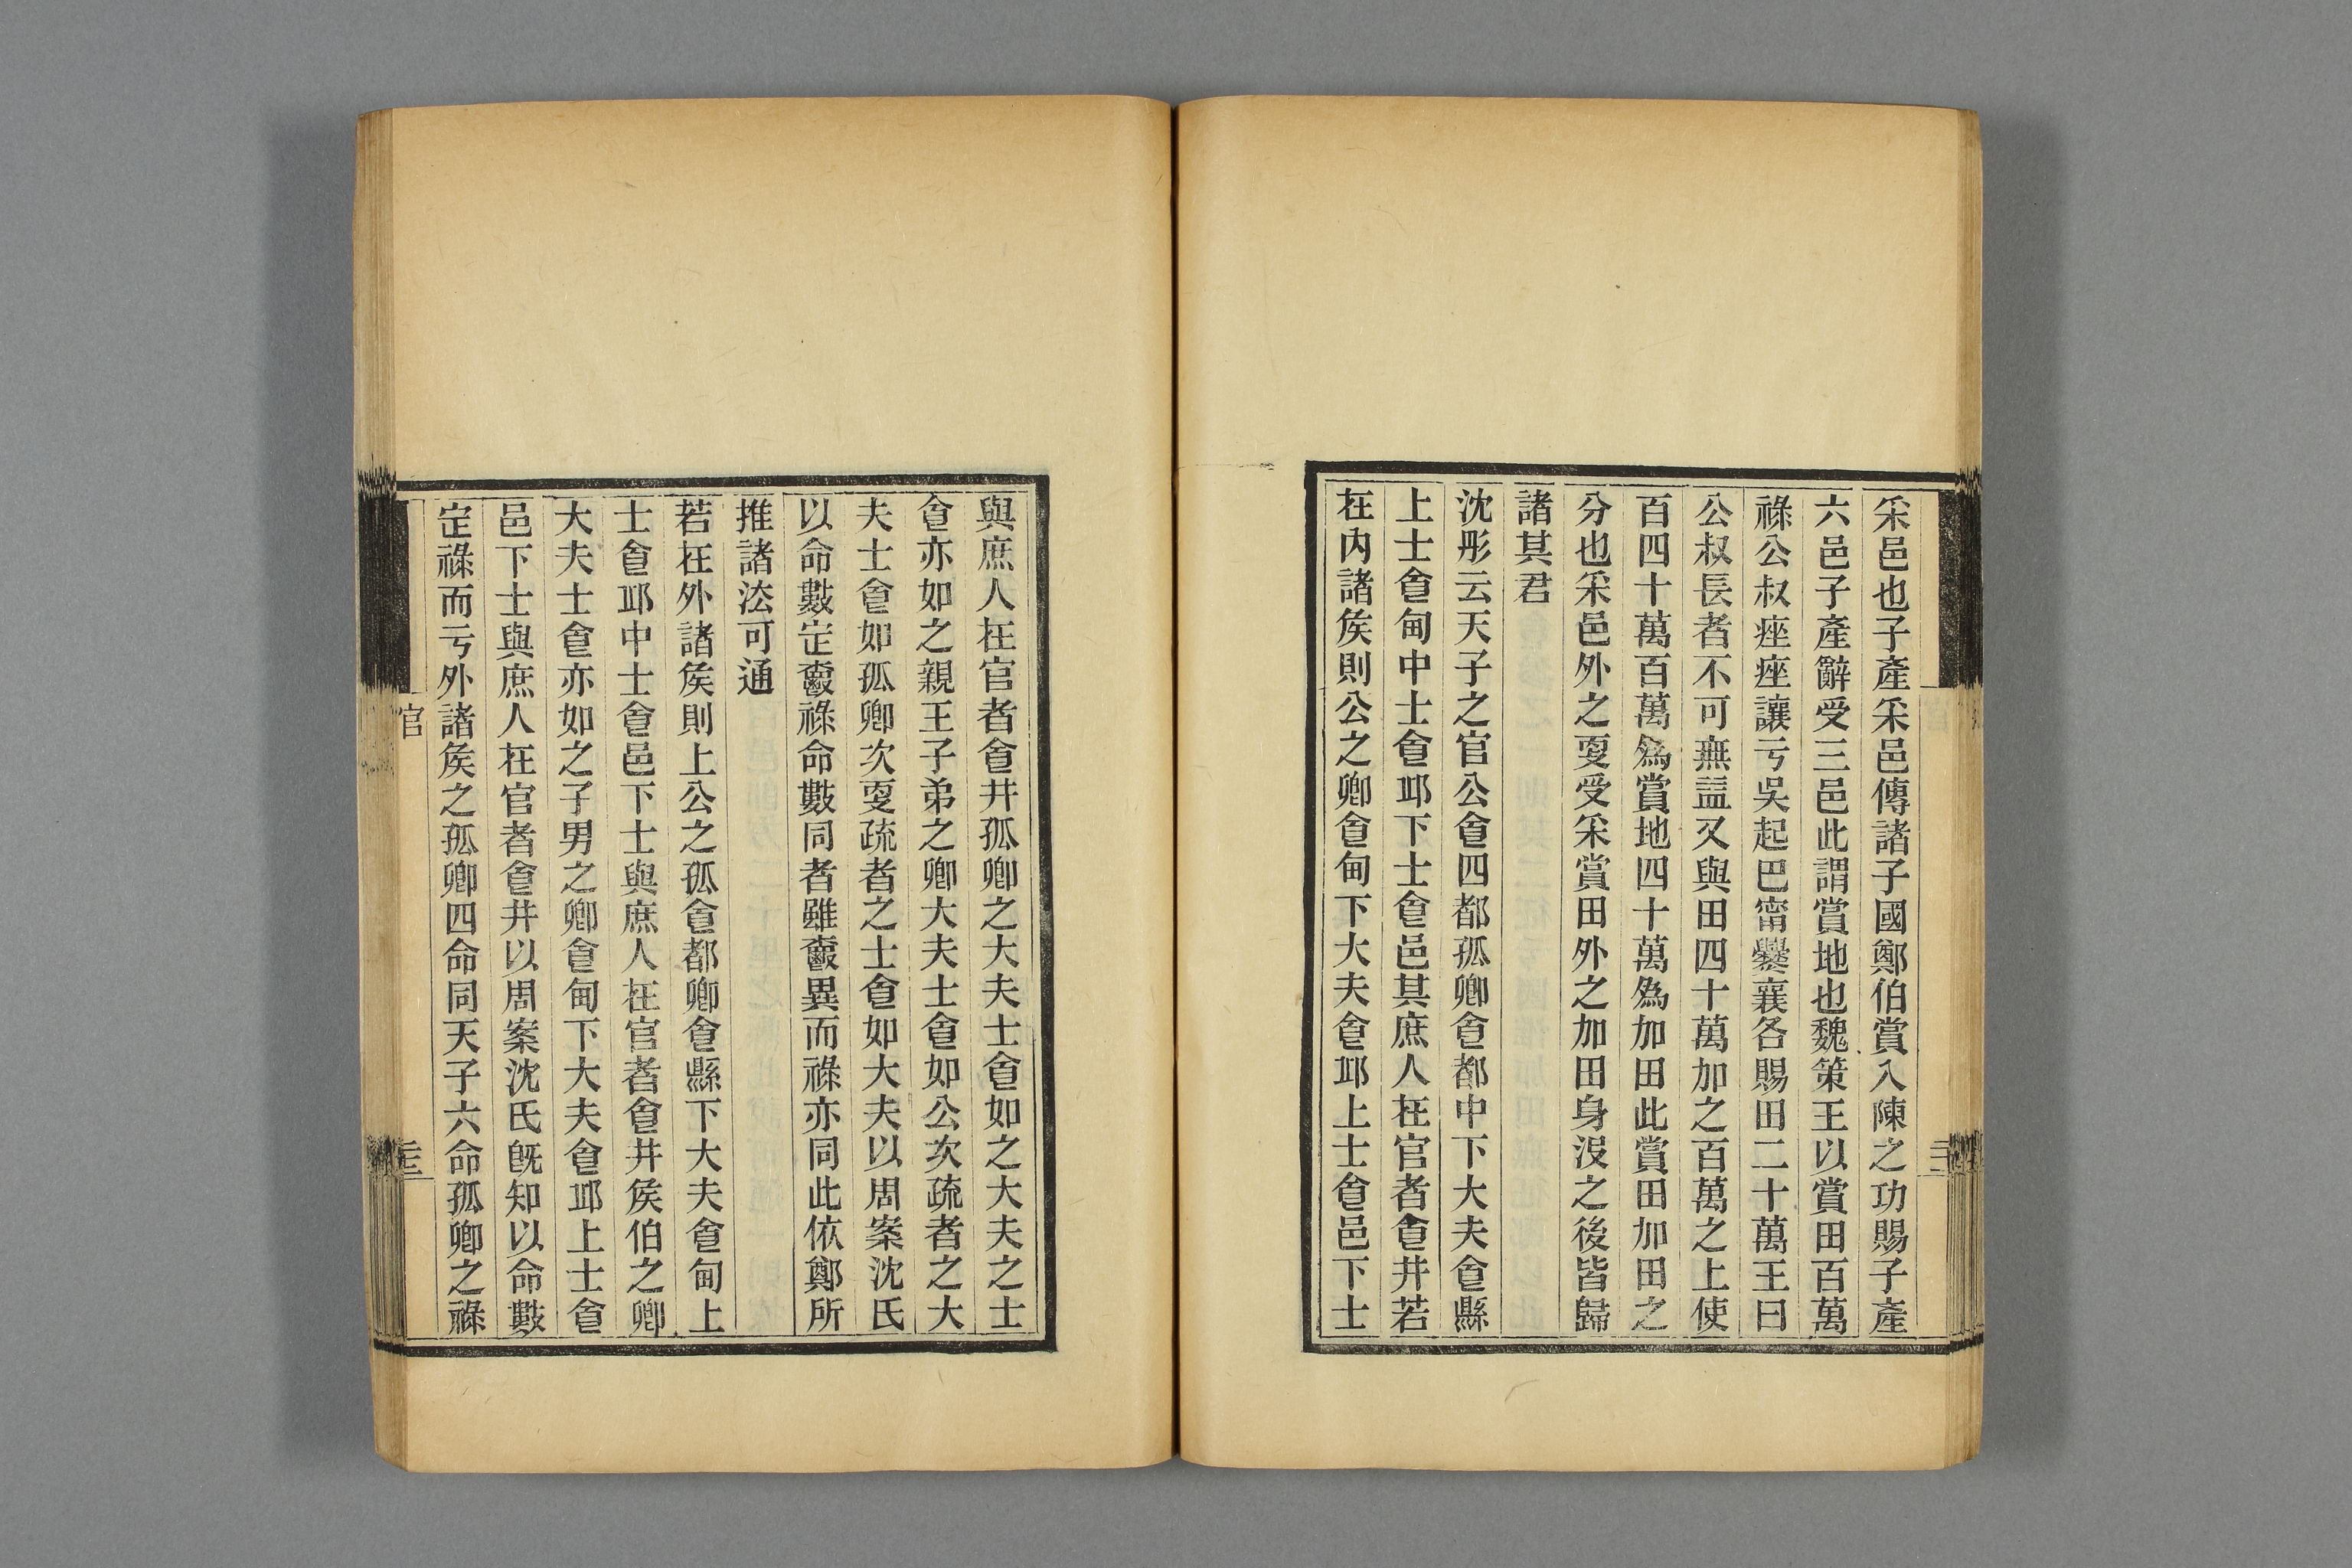 采邑也子產采邑傳諸子國鄭伯賞入陳之功賜子產
六邑子產辭受三邑此謂賞地也魏策王以賞田百萬
祿公叔痤痤讓亏吳起巴甯爨襄各賜田二十萬王曰
公叔長者不可無盇又與田四十萬加之百萬之上使
百四十萬百萬爲賞地四十萬爲加田此賞田加田之
分也采邑外之㪅受采賞田外之加田身沒之後皆歸
諸其君
沈彤云天子之官公𠊊四都孤卿𠊊都中下大夫𠊊縣
上士𠊊甸中士𠊊丘下士𠊊邑其庶人在官者𠊊井若
在内諸矦則公之卿𠊊甸下大夫𠊊丘上士𠊊邑下士
與庶人在官者𠊊井孤卿之大夫士𠊊如之大夫之士
𠊊亦如之親王子弟之卿大夫士𠊊如公次疏者之大
夫士𠊊如孤卿次㪅疏者之士𠊊如大夫以周案沈氏
以命數定爵祿命數同者雖爵異而祿亦同此依鄭所
推諸法可通
若在外諸矦則上公之孤𠊊都卿𠊊縣下大夫𠊊甸上
士𠊊丘中士𠊊邑下士與庶人在官者𠊊井矦伯之卿
大夫士𠊊亦如之子男之卿𠊊甸下大夫𠊊丘上士𠊊
邑下士與庶人在官者𠊊井以周案沈氏旣知以命數
定祿而亏外諸矦之孤卿四命同天子六命孤卿之祿
官